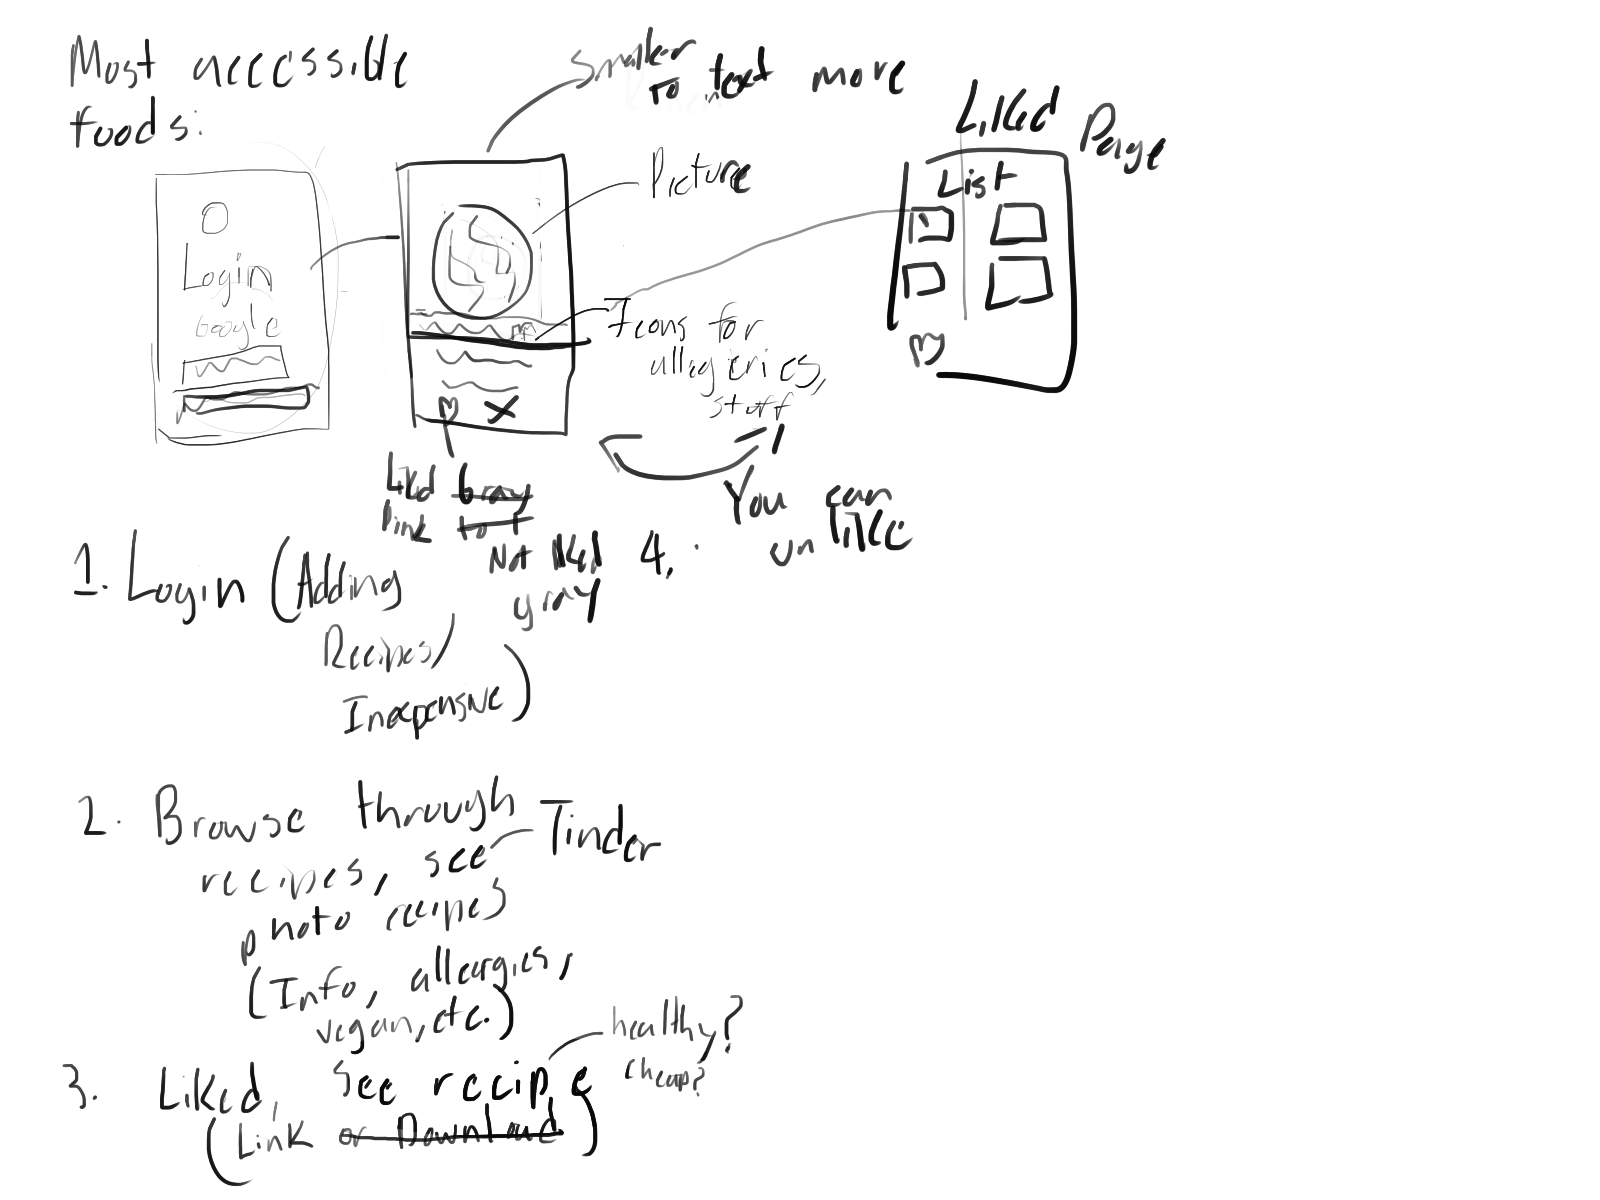 Most accessible
foods:
Smaller
to text more
Picture
Liked Page
List
Login
Google
Icons for
allegeries,
stuff
Liked gray
pink to f
Not liked
gray
You can
un like
1. Login (Adding
Recipes/
Inexpensive)
4.
2. Browse through
recipes, see
Tinder
photo recipes
(Info, alleargies,
vegan, etc.)
healthy?
cheap?
3. Liked, see recipe
(Link or Download)